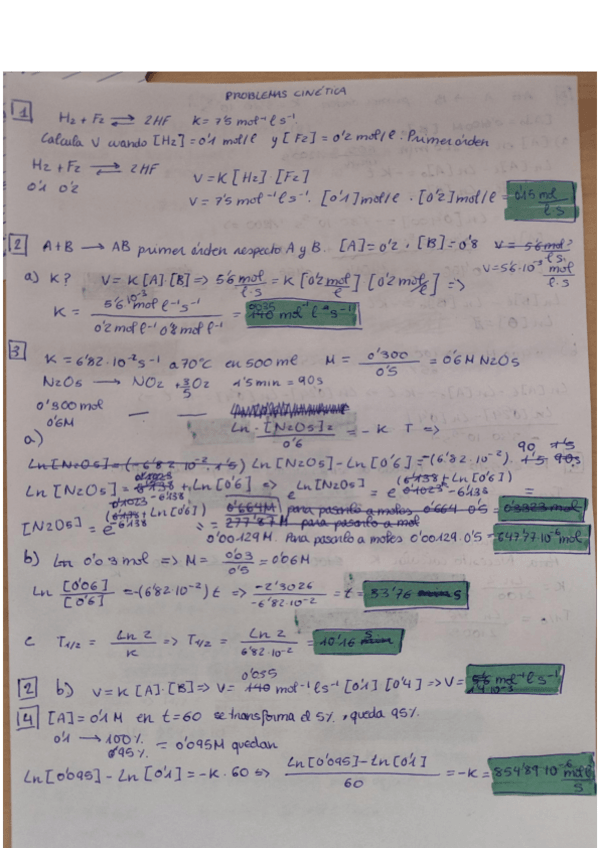 PROBLEMAS CINÉTICA
1 H2 + F2 ⇌ 2HF K = 7'5 mol⁻¹ l s⁻¹.
Calcula V cuando [H2] = 0'1 mol/l y [F2] = 0'2 mol/l. Primer órden
H2 + F2 ⇌ 2HF V = K [H2] · [F2]
0'1 0'2 V = 7'5 mol⁻¹ l s⁻¹ · [0'1] mol/l · [0'2] mol/l = 0'15 mol/l·s
2 A+B → AB primer órden respecto A y B. [A] = 0'2, [B] = 0'8 V = 5'6 mol/l·s
V = 5'6·10⁻³ mol/l·s
a) K? V = K [A]·[B] => 5'6 mol/l·s = K [0'2 mol/l] [0'2 mol/l] =>
K = 5'6 10⁻³ mol l⁻¹ s⁻¹ / 0'2 mol l⁻¹ 0'8 mol l⁻¹ = mol⁻¹ l s⁻¹
3 K = 6'82·10⁻² s⁻¹ a 70ºC en 500 ml M = 0'300 / 0'5 = 0'6 M N2O5
N2O5 → NO2 + O2 1'5 min = 90 s
0'300 mol — —
0'6M
a) Ln [N2O5]2 / 0'6 = - K T =>
90 1'5
Ln [N2O5] = (-6'82·10⁻²·1'5) Ln [N2O5] - Ln [0'6] = -(6'82·10⁻²). 1'5 90s
Ln [N2O5] = 6'138 + Ln [0'6] => e Ln [N2O5] = e -6'138 + Ln [0'6] =
[N2O5] = e -6'138 + Ln [0'6] = 0'664M para pasarlo a moles 0'664 · 0'5 = 0'3323 mol
= 277'87 M para pasarlo a mol
0'00129 M. Para pasarlo a moles 0'00129·0'5 = 647'77·10⁻⁶ mol
b) Ln 0'03 mol => M = 0'03 / 0'5 = 0'06M
Ln [0'06] / [0'6] = -(6'82·10⁻²) t => -2'3026 / -6'82·10⁻² = t = 33'76 s
c T1/2 = Ln 2 / K => T1/2 = Ln 2 / 6'82·10⁻² = 10'16 s
0'035
2 b) V = K [A]·[B] => V = 140 mol⁻¹ l s⁻¹ [0'1] [0'4] => V = 5'6 mol⁻¹ l s⁻¹
1'4 10⁻³
4 [A] = 0'1 M en t = 60 se transforma el 5%, queda 95%.
0'1 → 100%
95% = 0'095M quedan
Ln [0'095] - Ln [0'1] = -K · 60 => Ln [0'095] - Ln [0'1] / 60 = -K = 854'89·10⁻⁶ mol l / s